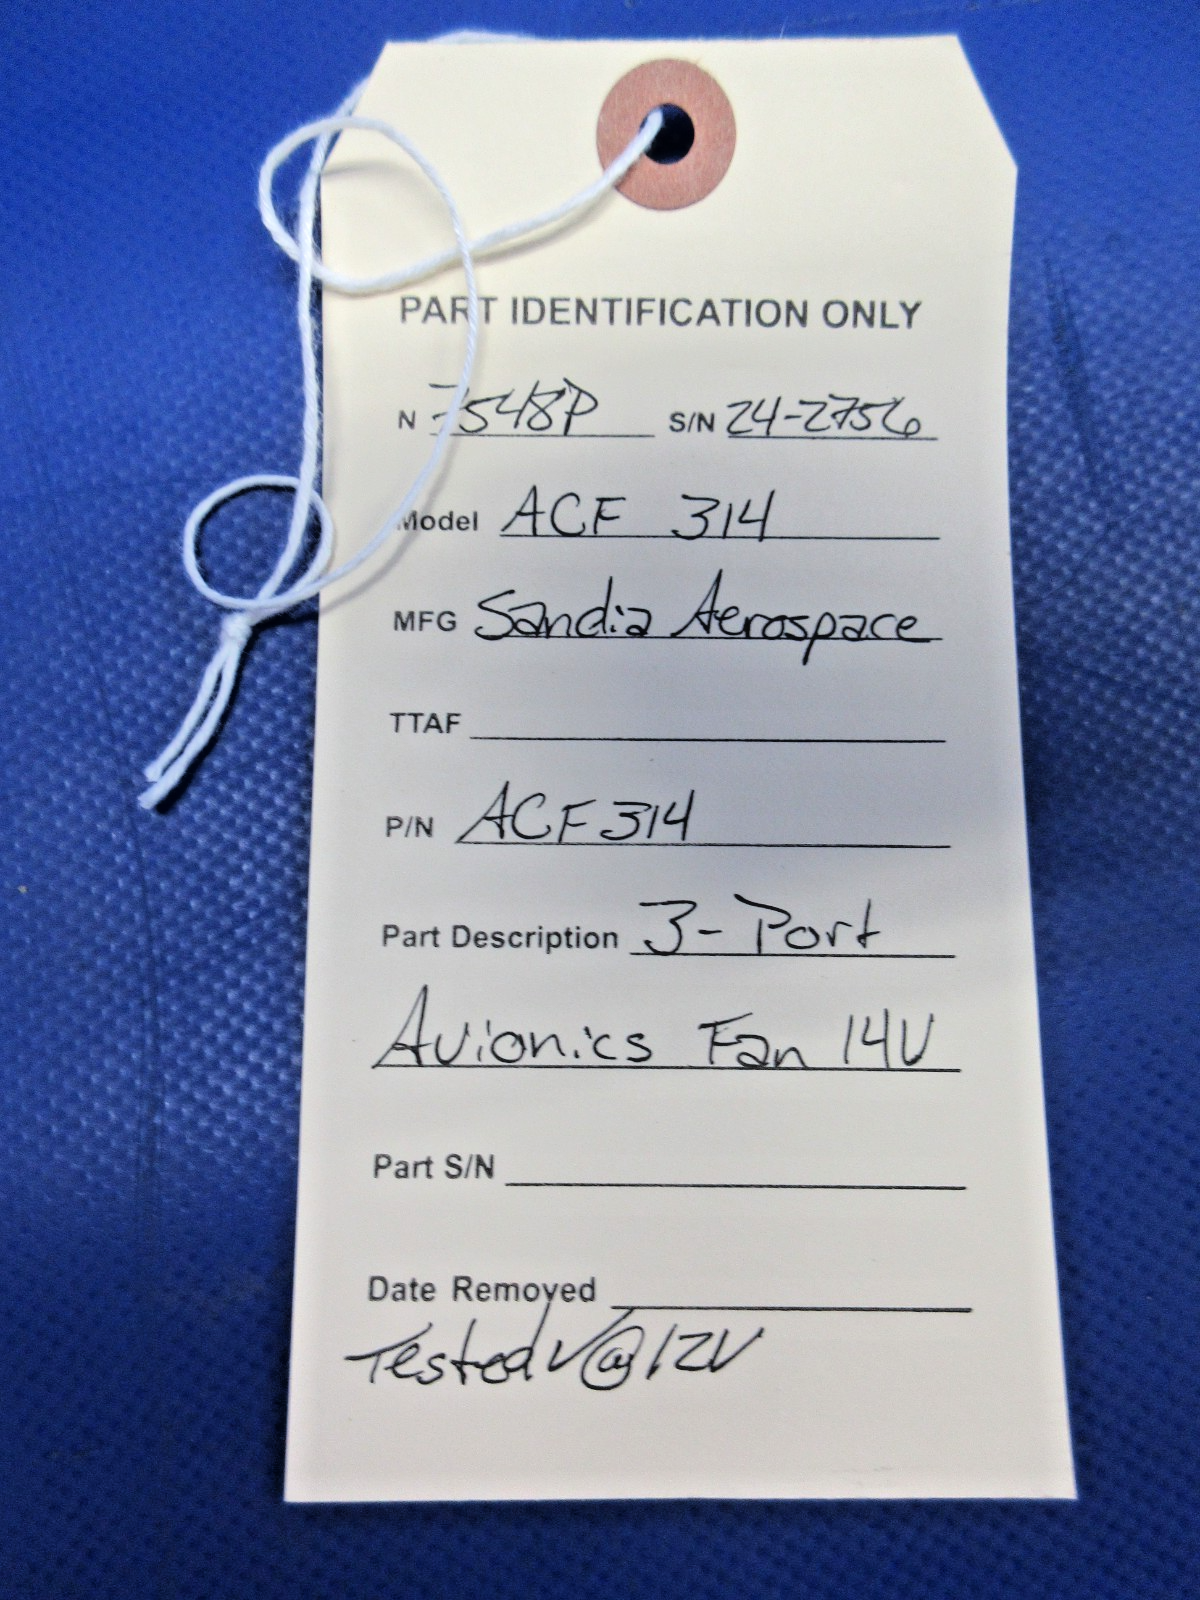 PART IDENTIFICATION ONLY
N 7548P S/N 24-2756
Model ACF 314
MFG Sandia Aerospace
TTAF
P/N ACF314
Part Description 3-Port
Avionics Fan 14V
Part S/N
Date Removed
Tested √@12V